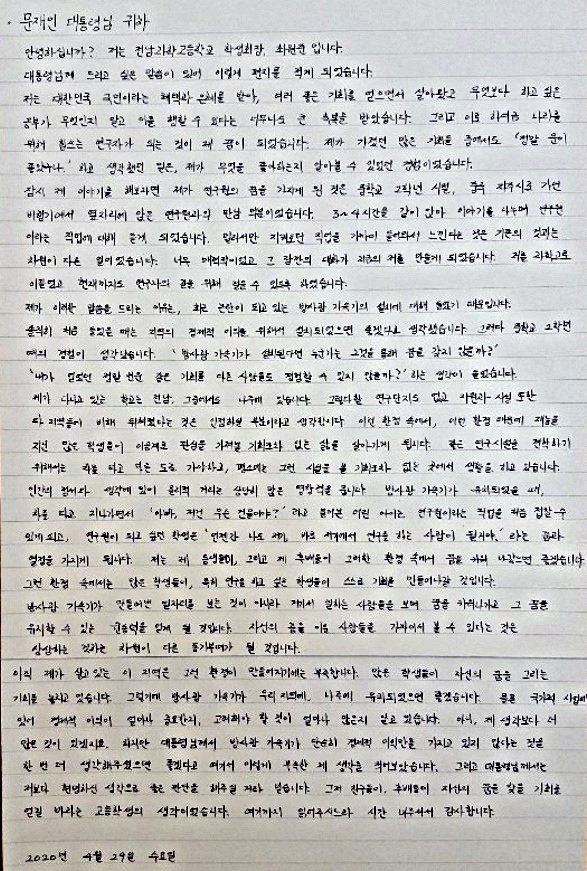 · 문재인 대통령님 귀하
안녕하십니까? 저는 전남과학고등학교 학생회장, 최원준 입니다.
대통령님께 드리고 싶은 말씀이 있어 이렇게 편지를 적게 되었습니다.
저는 대한민국 국민이라는 혜택과 은혜를 받아, 여러 좋은 기회를 얻으면서 살아왔고 무엇보다 하고 싶은
공부가 무엇인지 알고 이를 행할 수 있다는 너무나도 큰 축복을 받았습니다. 그리고 이로 하여금 나라를
위해 힘쓰는 연구자가 되는 것이 제 꿈이 되었습니다. 제가 가졌던 많은 기회들 중에서도 '정말 운이
좋았구나.' 하고 생각했던 일은, 제가 무엇을 좋아하는지 알아볼 수 있었던 경험이었습니다.
잠시 제 이야기를 해보자면 제가 연구원의 꿈을 가지게 된 것은 중학교 2학년 시절, 광주 제주시로 가던
비행기에서 옆자리에 앉은 연구원과의 만남 덕분이었습니다. 3~4시간을 같이 앉아 이야기를 나누며 연구원
이라는 직업에 대해 듣게 되었습니다. 멀리서만 지켜보던 직업을 가까이 들여와서 느낀다는 것은 기존의 것과는
차원이 다른 일이었습니다. 너무 매력적이었고 그 잠깐의 대화가 지금의 저를 만들게 되었습니다. 저를 과학고로
이끌었고 현재까지도 연구자의 꿈을 위해 달릴 수 있도록 하였습니다.
제가 이러한 말씀을 드리는 이유는, 최근 논란이 되고 있는 방사광 가속기의 설치에 대해 들었기 때문입니다.
솔직히 처음 들었을 때는 지역의 경제적 이익을 위해서 설치되었으면 좋겠다고 생각했습니다. 그러다 중학교 2학년
때의 경험이 생각났습니다. '방사광 가속기가 설치된다면 누군가는 그것을 통해 꿈을 갖지 않을까?'
'내가 얻었던 정말 천운 같은 기회를 다른 사람들도 경험할 수 있지 않을까?' 하는 생각이 들었습니다.
제가 다니고 있는 학교는 전남, 그중에서도 나주에 있습니다. 그렇다할 연구단지도 없고 자원과 시설 또한
타 지역들에 비해 뒤처졌다는 것은 인정하실 부분이라고 생각합니다. 이런 환경 속에서, 이런 환경 때문에 재능을
지닌 많은 학생들이 이공계로 관심을 가져볼 기회조차 없는 삶을 살아가게 됩니다. 좋은 연구시설을 견학하기
위해서는 차를 타고 먼 도로 가야하고, 평소에는 그런 시설을 볼 기회조차 없는 곳에서 생활을 하고 있습니다.
인간의 정서와 생각에 있어 물리적 거리는 상당히 많은 영향력을 줍니다. 방사광 가속기가 유치되었을 때,
차를 타고 지나가면서 '아빠, 저건 무슨 건물이야?' 라고 물어본 어린 아이는 연구원이라는 직업을 처음 접할 수
있게 되고, 연구원이 되고 싶던 학생은 '언젠간 나도 저기, 바로 저기에서 연구를 하는 사람이 될거야.' 라는 꿈과
열정을 가지게 됩니다. 저는 제 동생들이, 그리고 제 후배들이 그러한 환경 속에서 꿈을 키워 나갔으면 좋겠습니다.
그런 환경 속에서는 많은 학생들이, 특히 연구를 하고 싶은 학생들이 스스로 기회를 만들어나갈 것입니다.
방사광 가속기가 만들어낸 일자리를 보는 것이 아니라 거기서 일하는 사람들을 보며 꿈을 키워나가고 그 꿈을
유지할 수 있는 원동력을 얻게 될 것입니다. 자신의 꿈을 이룬 사람들을 가까이서 볼 수 있다는 것은
상상하는 것과는 차원이 다른 동기부여가 될 것입니다.
아직 제가 살고있는 이 지역은 그런 환경이 만들어지기에는 부족합니다. 많은 학생들이 자신의 꿈을 그리는
기회를 놓치고 있습니다. 그렇기에 방사광 가속기가 우리 지역에, 나주에 유치되었으면 좋겠습니다. 물론 국가적 사업에
있어 경제적 이익이 얼마나 중요한지, 고려해야 할 것이 얼마나 많은지 알고 있습니다. 아니, 제 생각보다 더
많은 것이 있겠지요. 하지만 대통령님께서 방사광 가속기가 단순히 경제적 이익만을 가지고 있지 않다는 것을
한 번 더 생각해주셨으면 좋겠다고 여겨서 이렇게 부족한 제 생각을 적어보았습니다. 그리고 대통령님께서는
저보다 현명하신 생각으로 옳은 판단을 해주실 거라 믿습니다. 그저 친구들이, 후배들이 자신의 꿈을 찾을 기회를
얻길 바라는 고등학생의 생각이었습니다. 여기까지 읽어주시느라 시간 내주셔서 감사합니다.
2020년 4월 29일 수요일